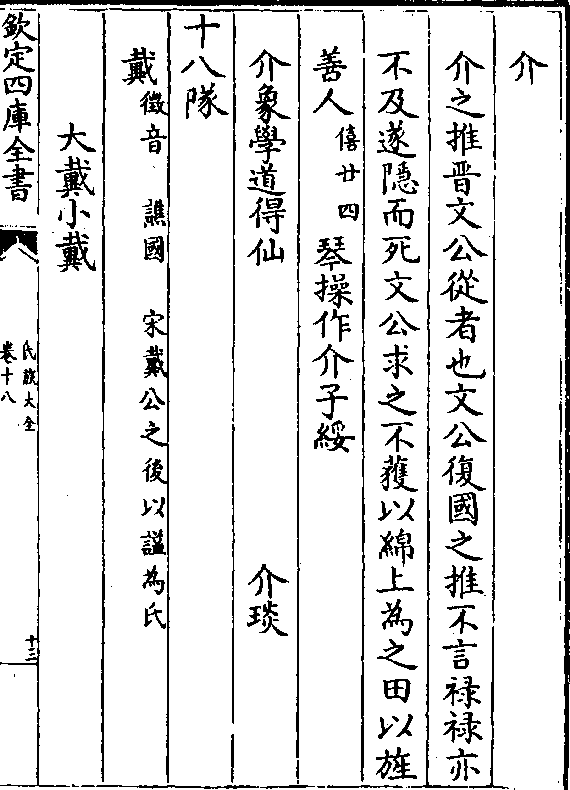 介
介之推晋文公從者也文公復國之推不言禄禄亦
不及遂隠而死文公求之不獲以綿上為之田以旌
善人僖廿四琴操作介子綏
介象學道得仙 介琰
十八隊
戴徵音 譙國 宋戴公之後以諡為氏
大戴小戴
欽定四庫全書
氏族大全
卷十八
十三